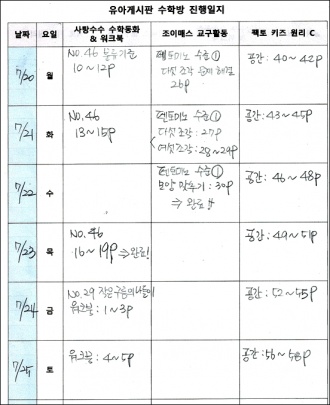 유아게시판 수학방 진행일지
날짜 요일 사랑수수 수학동화 & 워크북 조이매스 교구활동 팩토 키즈 원리 C
7/20 월 No. 46 분류기준
10~12p
펜토미노 수준①
다섯조각 문제 해결
26p
공간: 40~42p
7/21 화 No. 46
13~15p
펜토미노 수준①
다섯 조각: 27p
여섯 조각: 28~29p
공간: 43~45p
7/22 수
펜토미노 수준①
모양 맞추기: 30p
⇒ 완료
공간: 46~48p
7/23 목 No. 46
16~19p ⇒ 완료!
공간: 49~51p
7/24 금 No. 29 작은 구름의 나들이
워크북: 1~3p
공간: 52~55p
7/25 토 워크북: 4~5p
공간: 56~58p